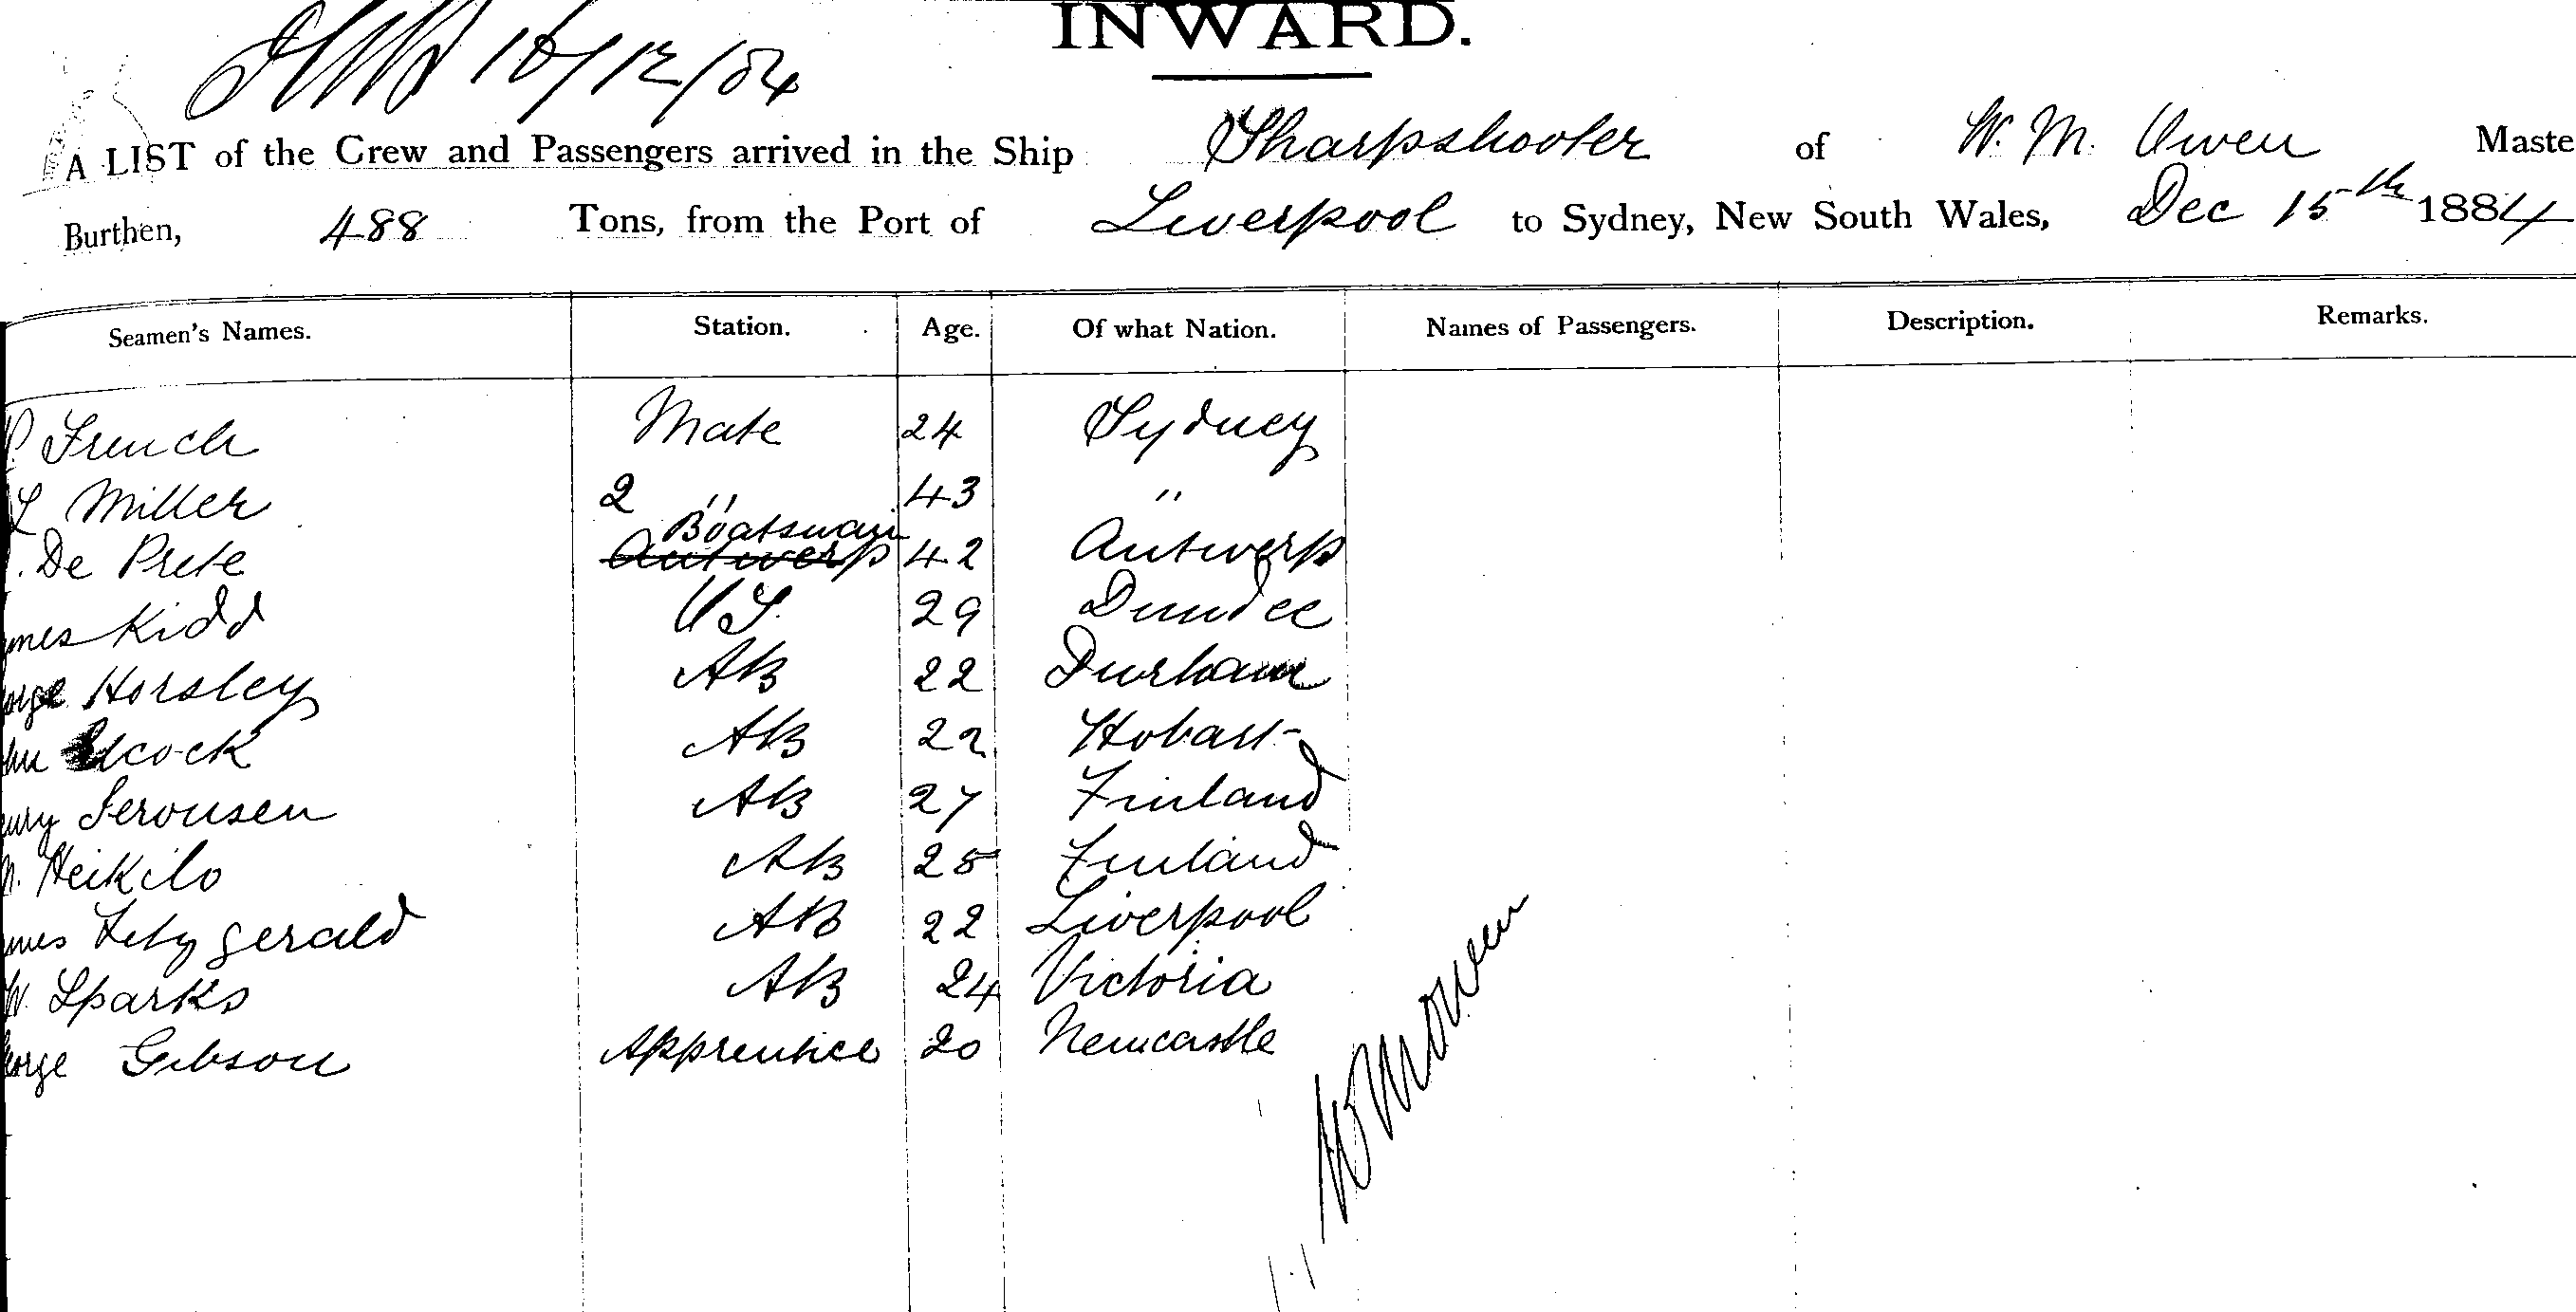 INWARD.
16/12/84
A LIST of the Crew and Passengers arrived in the Ship Sharpshooter of W. M. Owen Maste
Burthen, 488 Tons, from the Port of Liverpool to Sydney, New South Wales, Dec 15th 1884
Seamen's Names. Station. Age. Of what Nation. Names of Passengers. Description. Remarks.
P French Mate 24 Sydney
L Miller 2 " 43 "
De Prete Boatswain Antwerp 42 Antwerp
mes Kidd 29 Dundee
orge Horsley AB 22 Durham
ohn AB 22 Hobart
enry Jerousen AB 27 Finland
Heikilo AB 25 Finland
ames Fitzgerald AB 22 Liverpool
W. Sparks AB 24 Victoria
eorge Gibson Apprentice 20 Newcastle
W M Owen